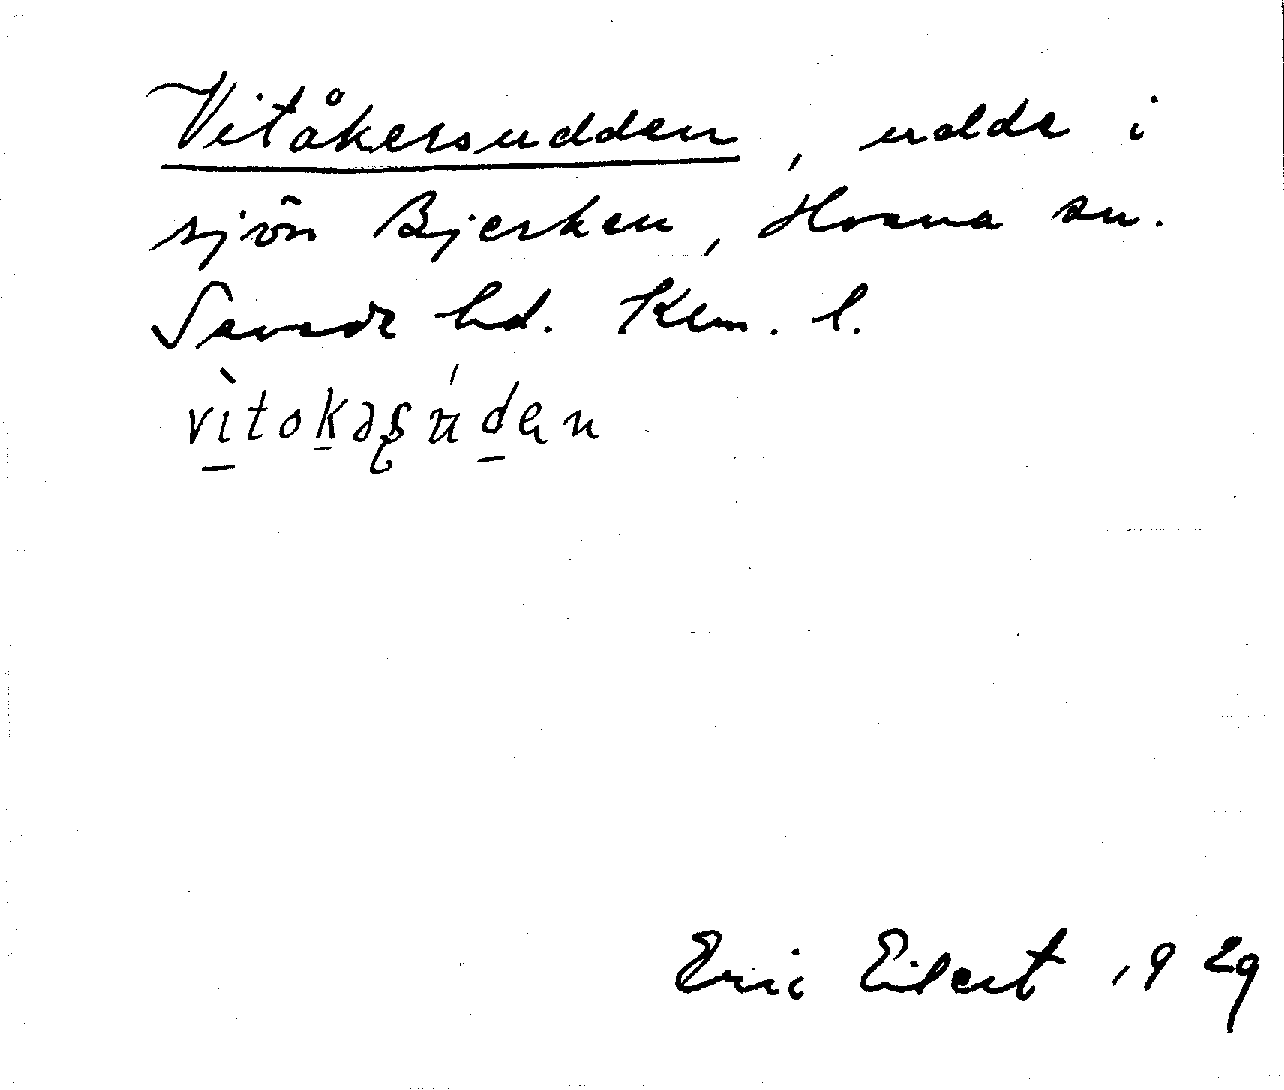 Vitåkersudden, udde i
sjön Bjerken, Horna sn.
Sevede hd. Klm. l.
vìtokəʂúden
Eric Eilert 1929